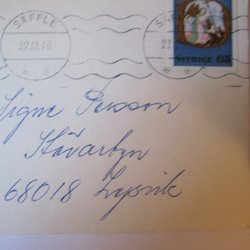 SÄFFLE
22.12.76
SVERIGE 65
Signe Persson
Stävarbyn
68018 Lysvik